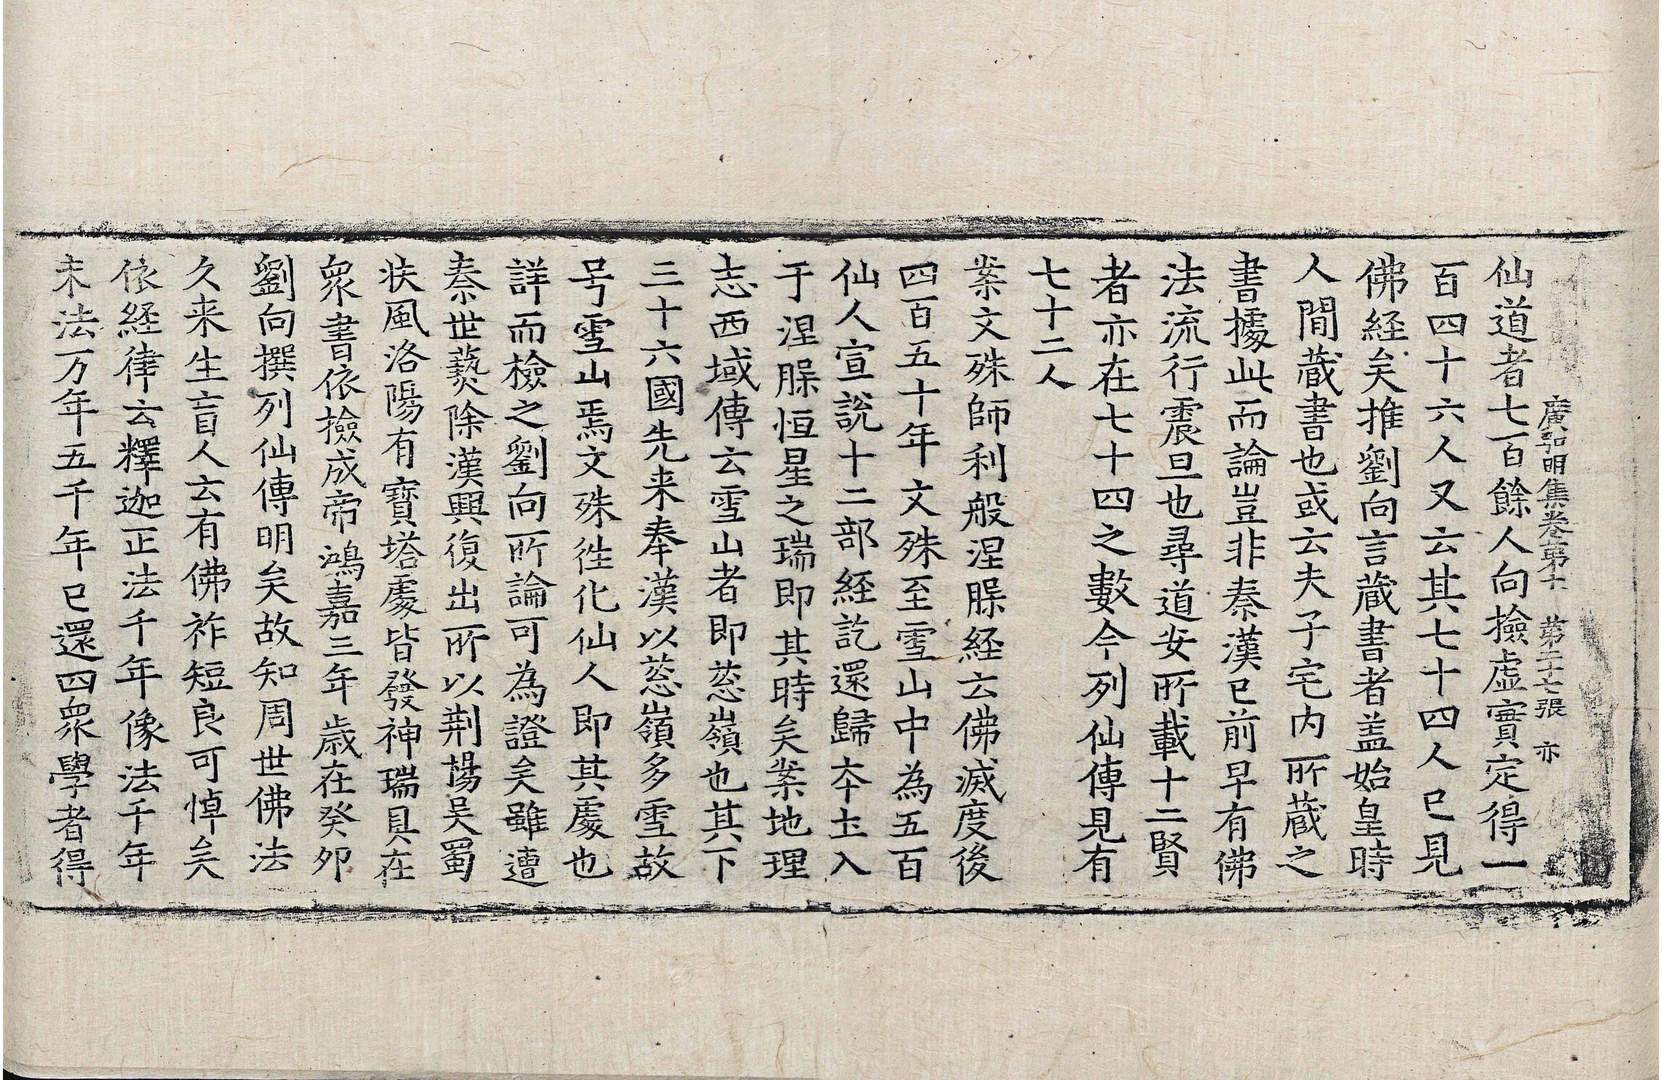 廣弘明集卷第十一 第二十七張 亦
仙道者七百餘人向撿虛實定得一
百四十六人又云其七十四人已見
佛經矣推劉向言藏書者盖始皇時
人間藏書也或云夫子宅內所藏之
書據此而論豈非秦漢已前早有佛
法流行震旦也尋道安所載十二賢
者亦在七十四之數今列仙傳見有
七十二人
案文殊師利般涅槃經云佛滅度後
四百五十年文殊至雪山中為五百
仙人宣說十二部經訖還歸本土入
于涅槃恒星之瑞即其時矣案地理
志西域傳云雪山者即葱嶺也其下
三十六國先来奉漢以葱嶺多雪故
号雪山焉文殊往化仙人即其處也
詳而檢之劉向所論可為證矣雖遭
秦世爇除漢興復出所以荆揚吳蜀
扶風洛陽有寶塔處皆發神瑞具在
衆書依撿成帝鴻嘉三年歲在癸夘
劉向撰列仙傳明矣故知周世佛法
久来生盲人云有佛祚短良可悼矣
依經律云釋迦正法千年像法千年
末法万年五千年已還四衆學者得